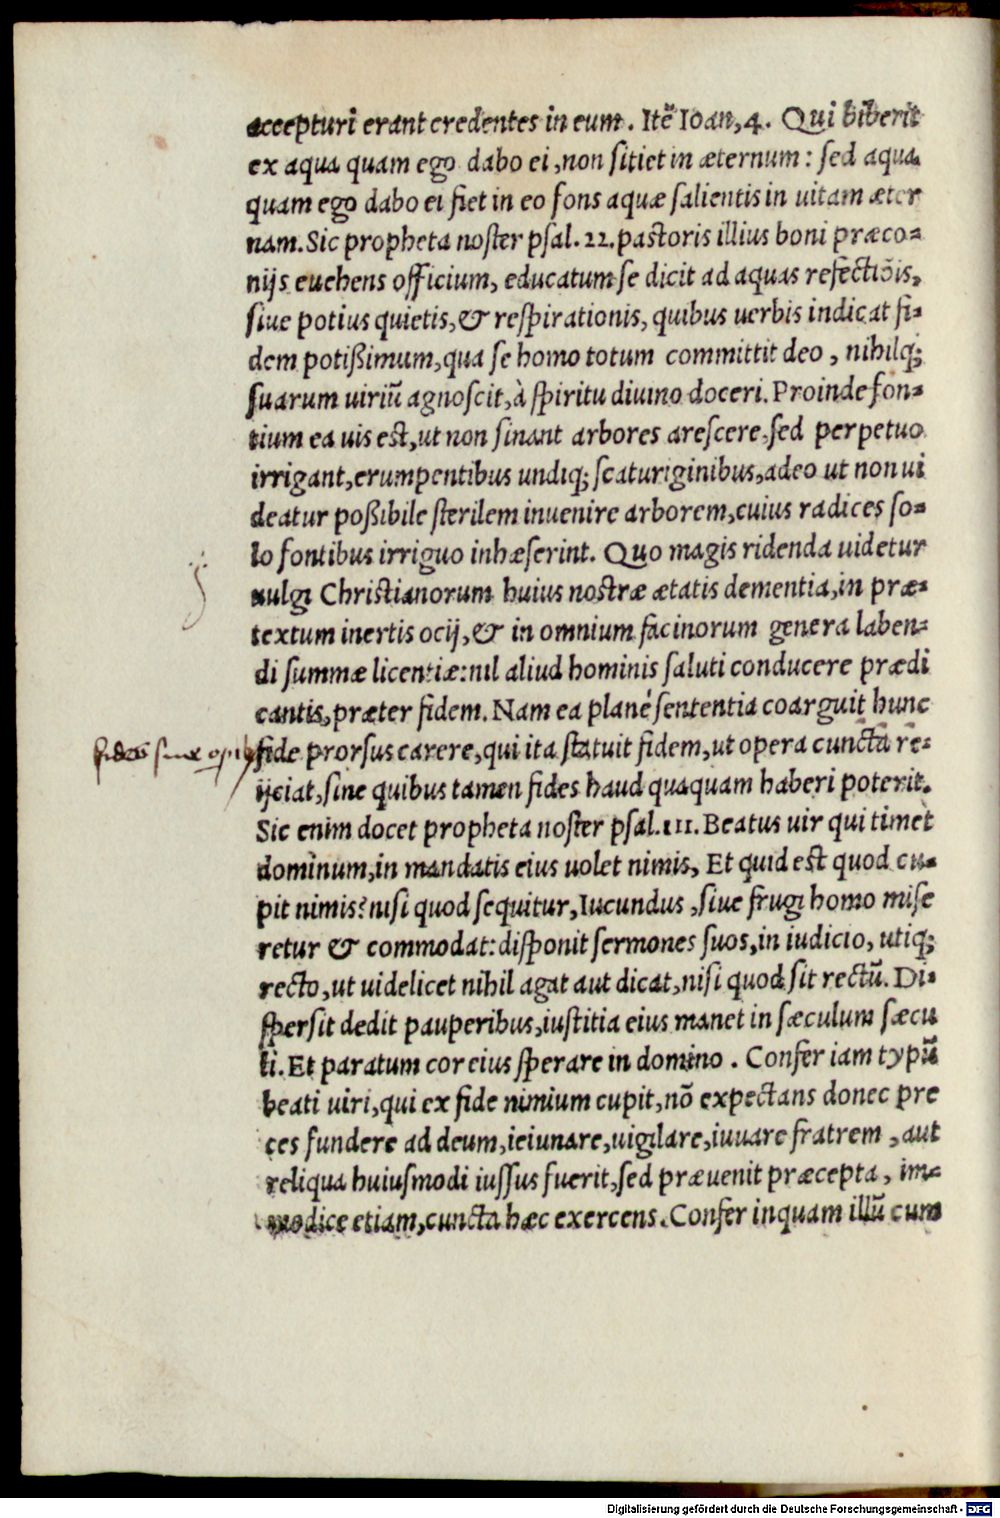 accepturi erant credentes in eum. Itē Ioan, 4. Qui biberit
ex aqua quam ego dabo ei, non sitiet in æternum: sed aqua
quam ego dabo ei fiet in eo fons aquæ salientis in uitam æter
nam. Sic propheta noster psal. 22. pastoris illius boni præco=
nijs euehens officium, educatum se dicit ad aquas refectiōis,
siue potius quietis, & respirationis, quibus uerbis indicat fi=
dem potißimum, qua se homo totum committit deo, nihilq;
suarum uiriū agnoscit, à spiritu diuino doceri. Proinde fon=
tium ea uis est, ut non sinant arbores arescere, sed perpetuo
irrigant, erumpentibus undiq; scaturiginibus, adeo ut non ui
deatur poßibile sterilem inuenire arborem, cuius radices so=
lo fontibus irriguo inhæserint. Quo magis ridenda uidetur
uulgi Christianorum huius nostræ ætatis dementia, in præ=
textum inertis ocij, & in omnium facinorum genera laben=
di summæ licentiæ: nil aliud hominis saluti conducere prædi
cantis, præter fidem. Nam ea planè sententia coarguit hunc
fides sine
fide prorsus carere, qui ita statuit fidem, ut opera cuncta re=
ijciat, sine quibus tamen fides haud quaquam haberi poterit.
Sic enim docet propheta noster psal. 111. Beatus uir qui timet
dominum, in mandatis eius uolet nimis, Et quid est quod cu=
pit nimis? nisi quod sequitur, Iucundus, siue frugi homo mise
retur & commodat: disponit sermones suos, in iudicio, utiq;
recto, ut uidelicet nihil agat aut dicat, nisi quod sit rectū. Di=
spersit dedit pauperibus, iustitia eius manet in sæculum sæcu
li. Et paratum cor eius sperare in domino. Confer iam typū
beati uiri, qui ex fide nimium cupit, nō expectans donec pre
ces fundere ad deum, ieiunare, uigilare, iuuare fratrem, aut
reliqua huiusmodi iussus fuerit, sed præuenit præcepta, im=
modice etiam, cuncta hæc exercens. Confer inquam illū cum
Digitalisierung gefördert durch die Deutsche Forschungsgemeinschaft - DFG